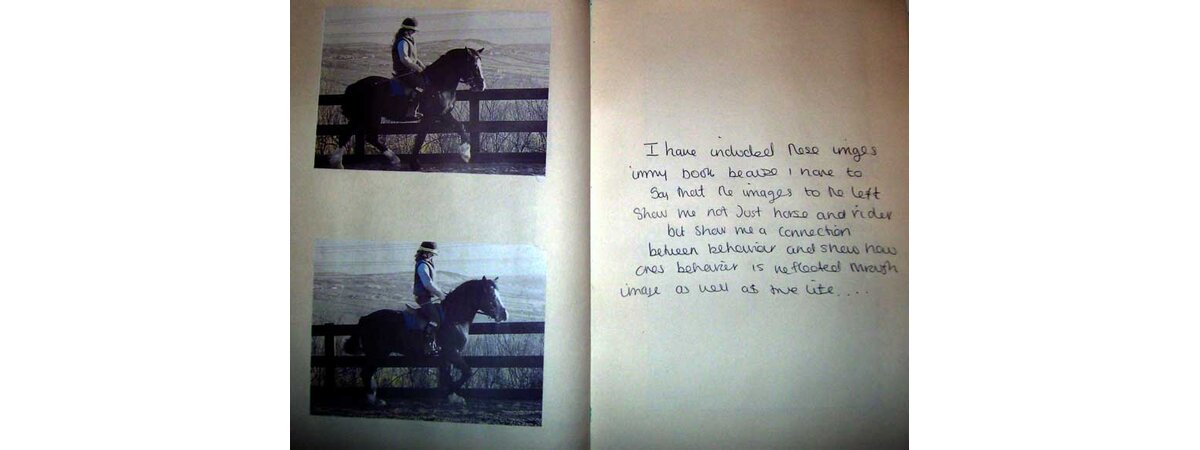 I have included these images
in my book because I have to
Say that the images to the left
Show me not Just horse and rider
but show me a connection
between behaviour and shows how
ones behavior is reflected through
image as well as true life....